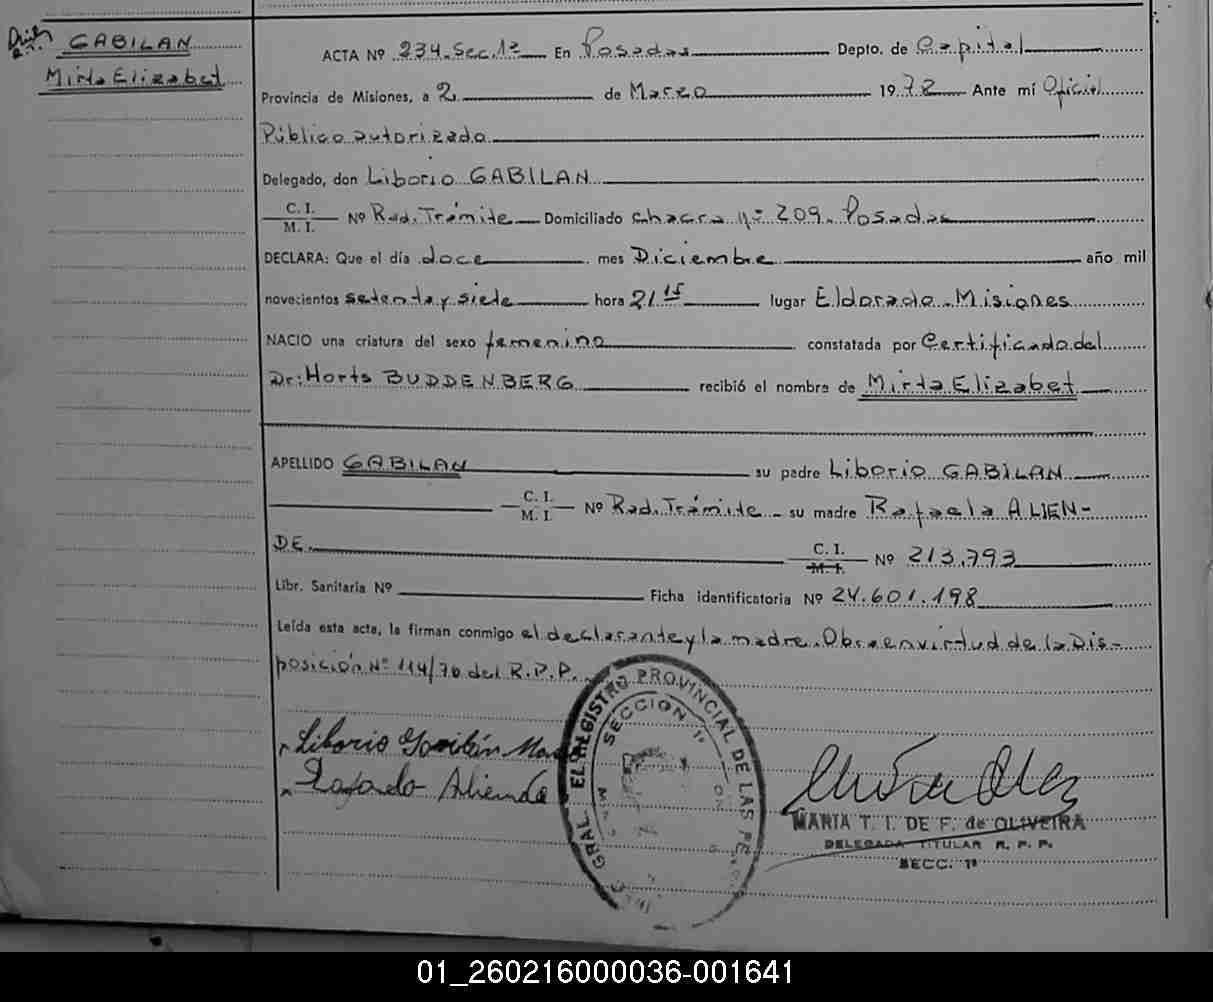 GABILAN
Mirta Elizabet
ACTA Nº 234.Sec.1ª En Posadas Depto. de Capital
Provincia de Misiones, a 2 de Marzo 1978 Ante mí Oficial
Público autorizado
Delegado, don Liborio GABILAN
C. I.
M. I. Nº Rad. Trámite Domiciliado Chacra nº 209. Posadas
DECLARA: Que el día doce mes Diciembre año mil
novecientos setenta y siete hora 21 15 lugar Eldorado - Misiones
NACIO una criatura del sexo femenino constatada por Certificado del
Dr: Horts BUDDENBERG recibió el nombre de Mirta Elizabet
APELLIDO GABILAN su padre Liborio GABILAN
C. I.
M. I. Nº Rad. Trámite - su madre Rafaela ALIEN-
DE. C. I.
M. I. Nº 213.793
Libr. Sanitaria Nº Ficha identificatoria Nº 24.601.198
Leída esta acta, la firman conmigo el declarante y la madre. Obra en virtud de la Dis-
posición Nº 114/76 del R.P.P.
Liborio
GRAL. EL REGISTRO PROVINCIAL DE LAS PE
SECCION 1ª
MARIA T. I. DE F. de OLIVEIRA
DELEGADA TITULAR R. P. P.
SECC. 1ª
01_260216000036-001641